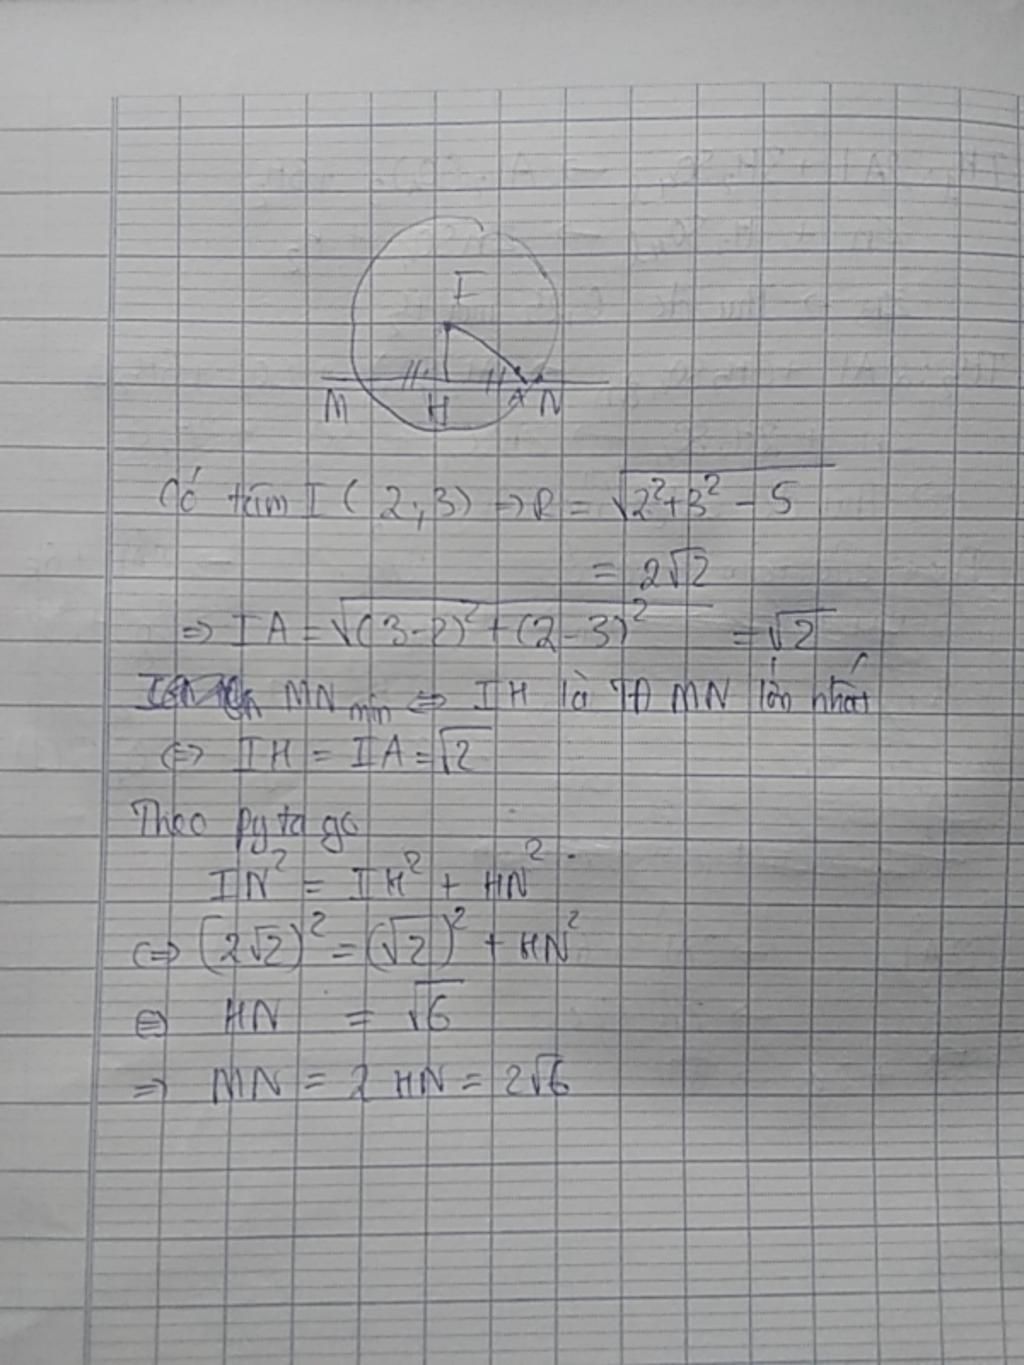 I
M H A N
Có tâm I ( 2; 3) => R = √2²+3² - 5
= 2√2
=> IA = √(3-2)²+(2-3)² = √2
MN min <=> IH là MN lớn nhất
<=> IH = IA = √2
Theo pytago
IN² = IH² + HN²
<=> (2√2)² = (√2)² + HN²
<=> HN = √6
=> MN = 2 HN = 2√6